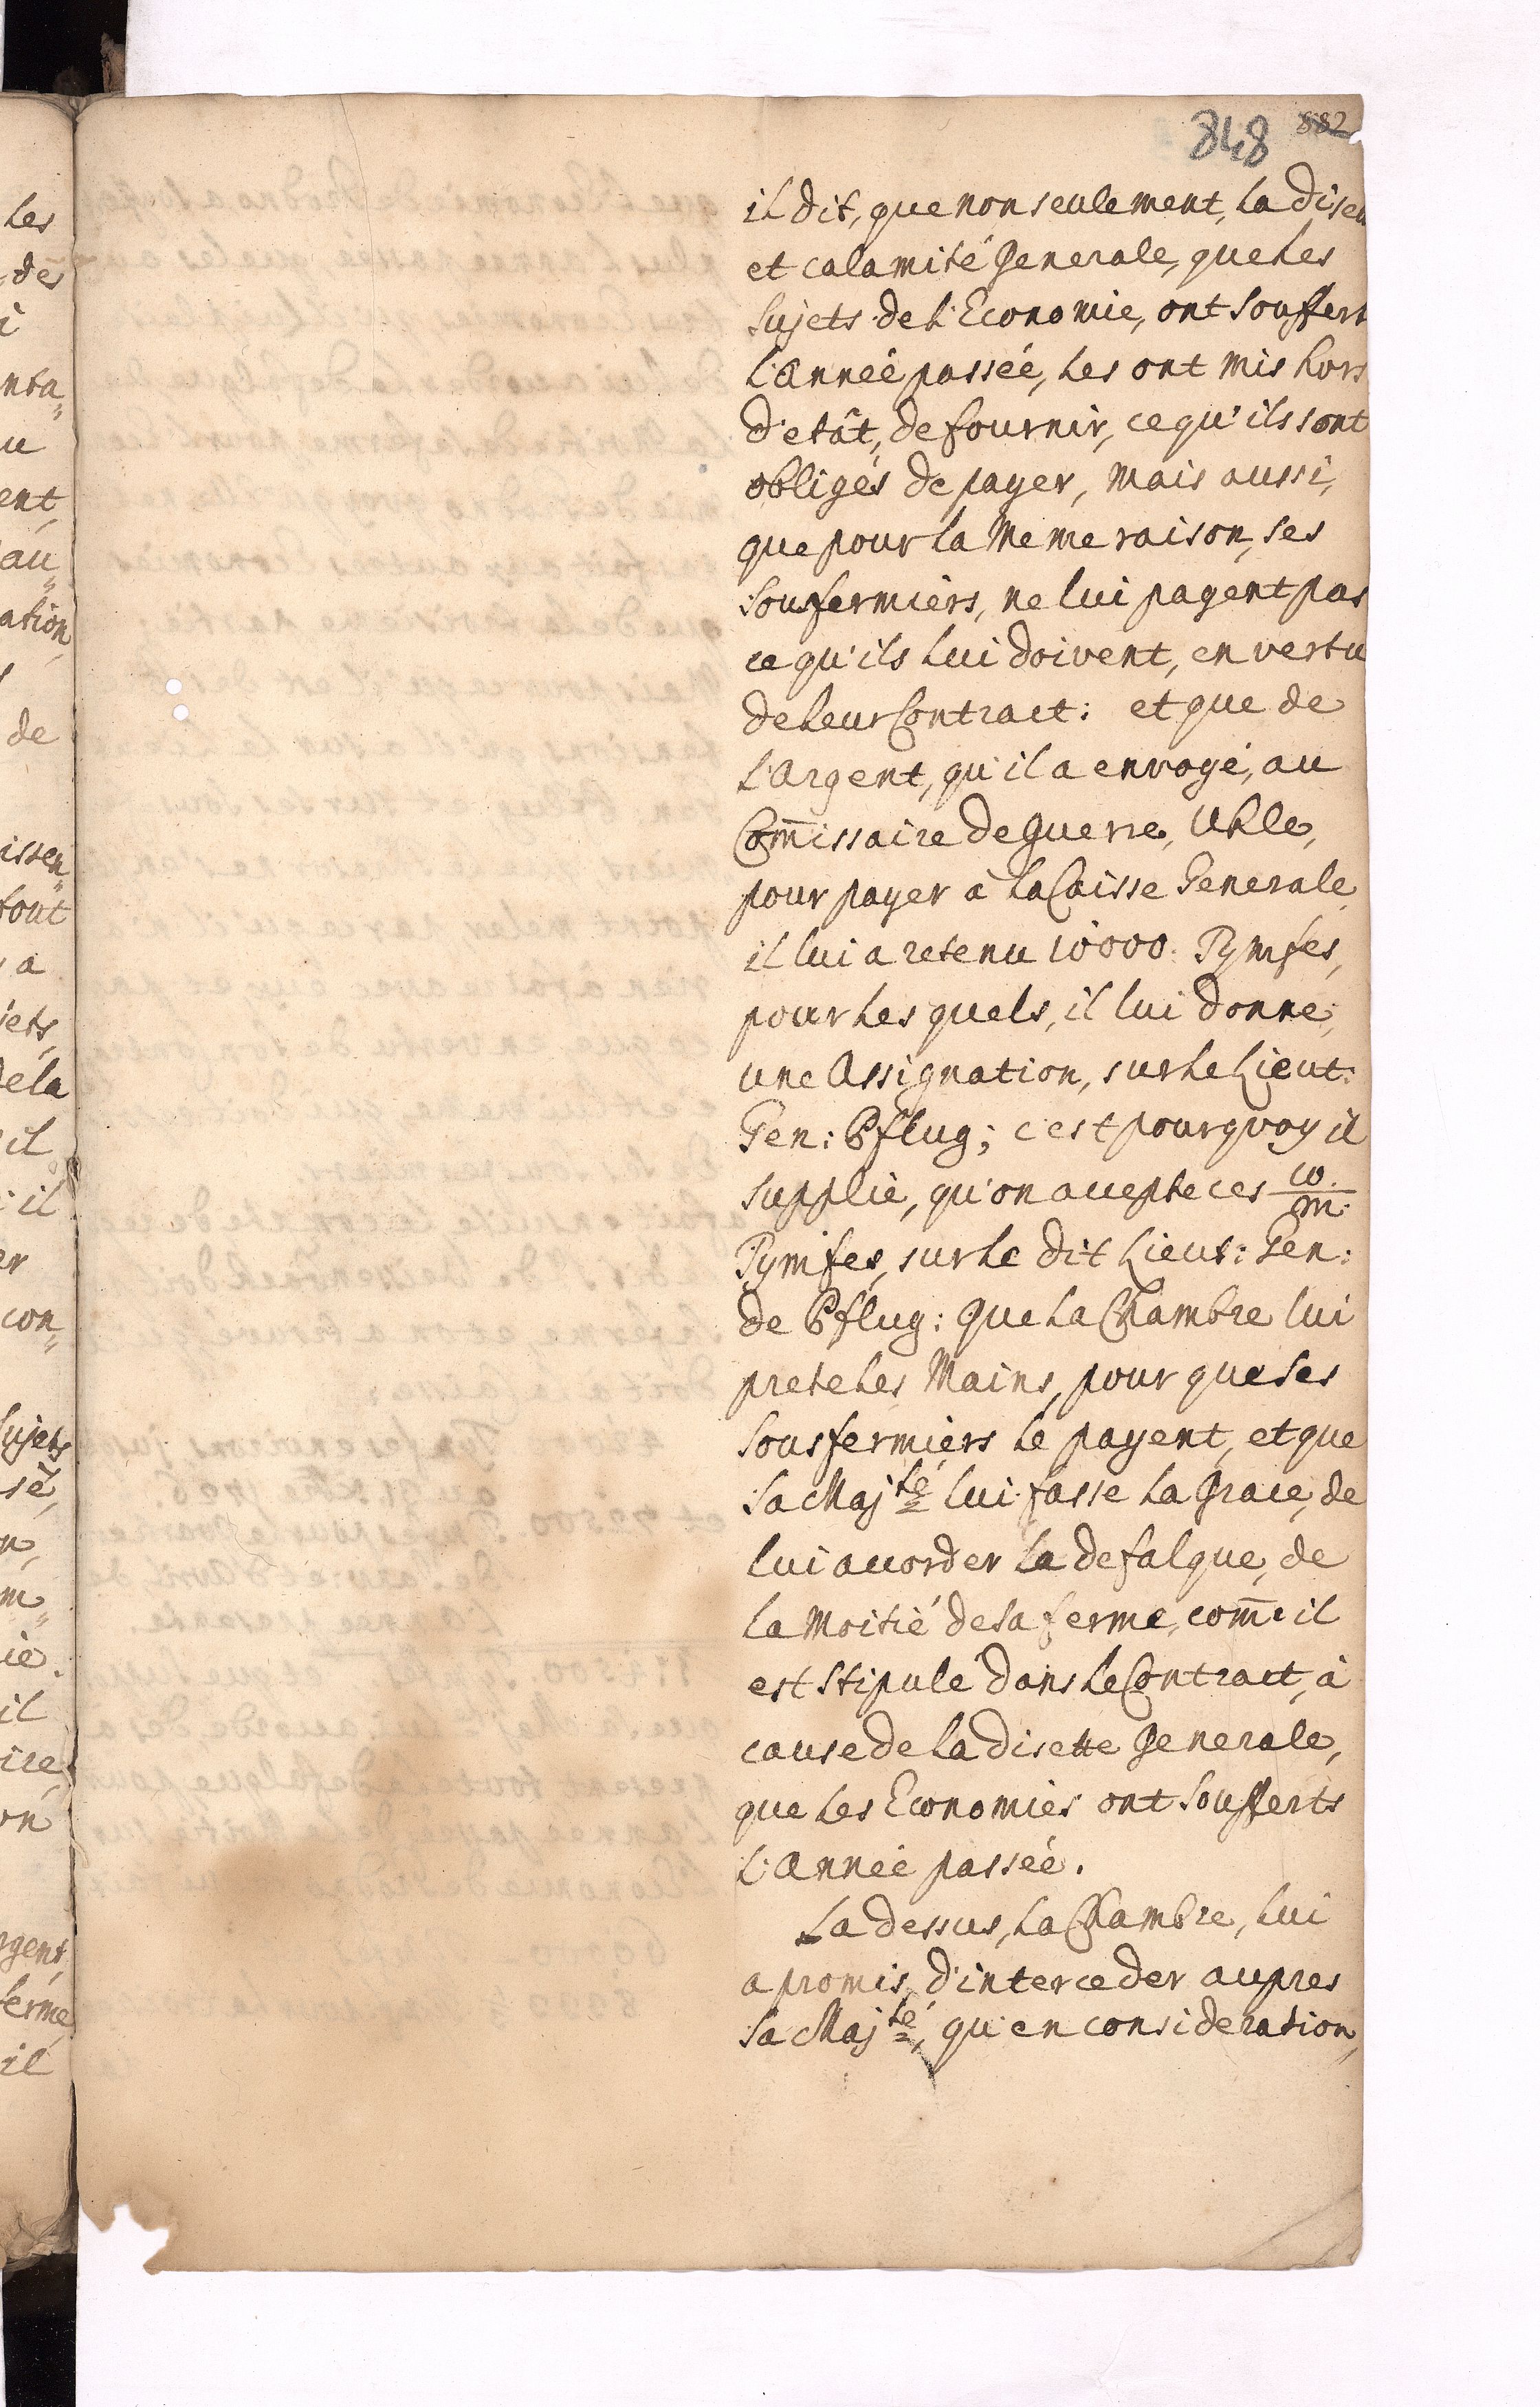 848 882
il dit, que non seulement, la dise
et calamité Generale, que les
Sujets de l'Economie, ont Souffert
L'Année passée, les ont mis hors
d'etât, de fournir, ce qu'ils sont
obligés de payer, Mais aussi,
que pour la Meme raison, ses
Sousfermiers, ne lui payent pas
ce qu'ils lui doivent, en vertu
de leur Contract: et que de
L'Argent, qu'il a envoyé, au
Com̄issaire de Guerre, Uhle,
pour payer à la Caisse Generale,
il lui a retenu 10000. Tymfes,
pour les quels, il lui donne,
une Assignation, sur le Lieut:
Gen: Pflug; c'est pourquoy il
supplie, qu'on accepte ces 10./m.
Tymfes, sur le dit Lieut: Gen:
de Pflug: que la Chambre lui
prete les Mains, pour que ses
Sousfermiers le payent, et que
Sa Maj.té lui fasse la Grace, de
lui accorder la defalque, de
la Moitié de sa ferme, com̄e il
est Stipulé dans le Contract, à
cause de la disette Generale,
que les Economies ont Soufferts
L'Année passée.
La dessus, la Chambre, lui
a promis, d'interceder aupres
Sa Maj.té, qu'en consideration,
les
des
nta„
u
ent,
au„
ation,
de
issen„
tout
a
jets,
de la
il
il
er
con„
Sujets
sé,
n,
m„
ie.
il
ire,
on
rgent,
ferme,
il